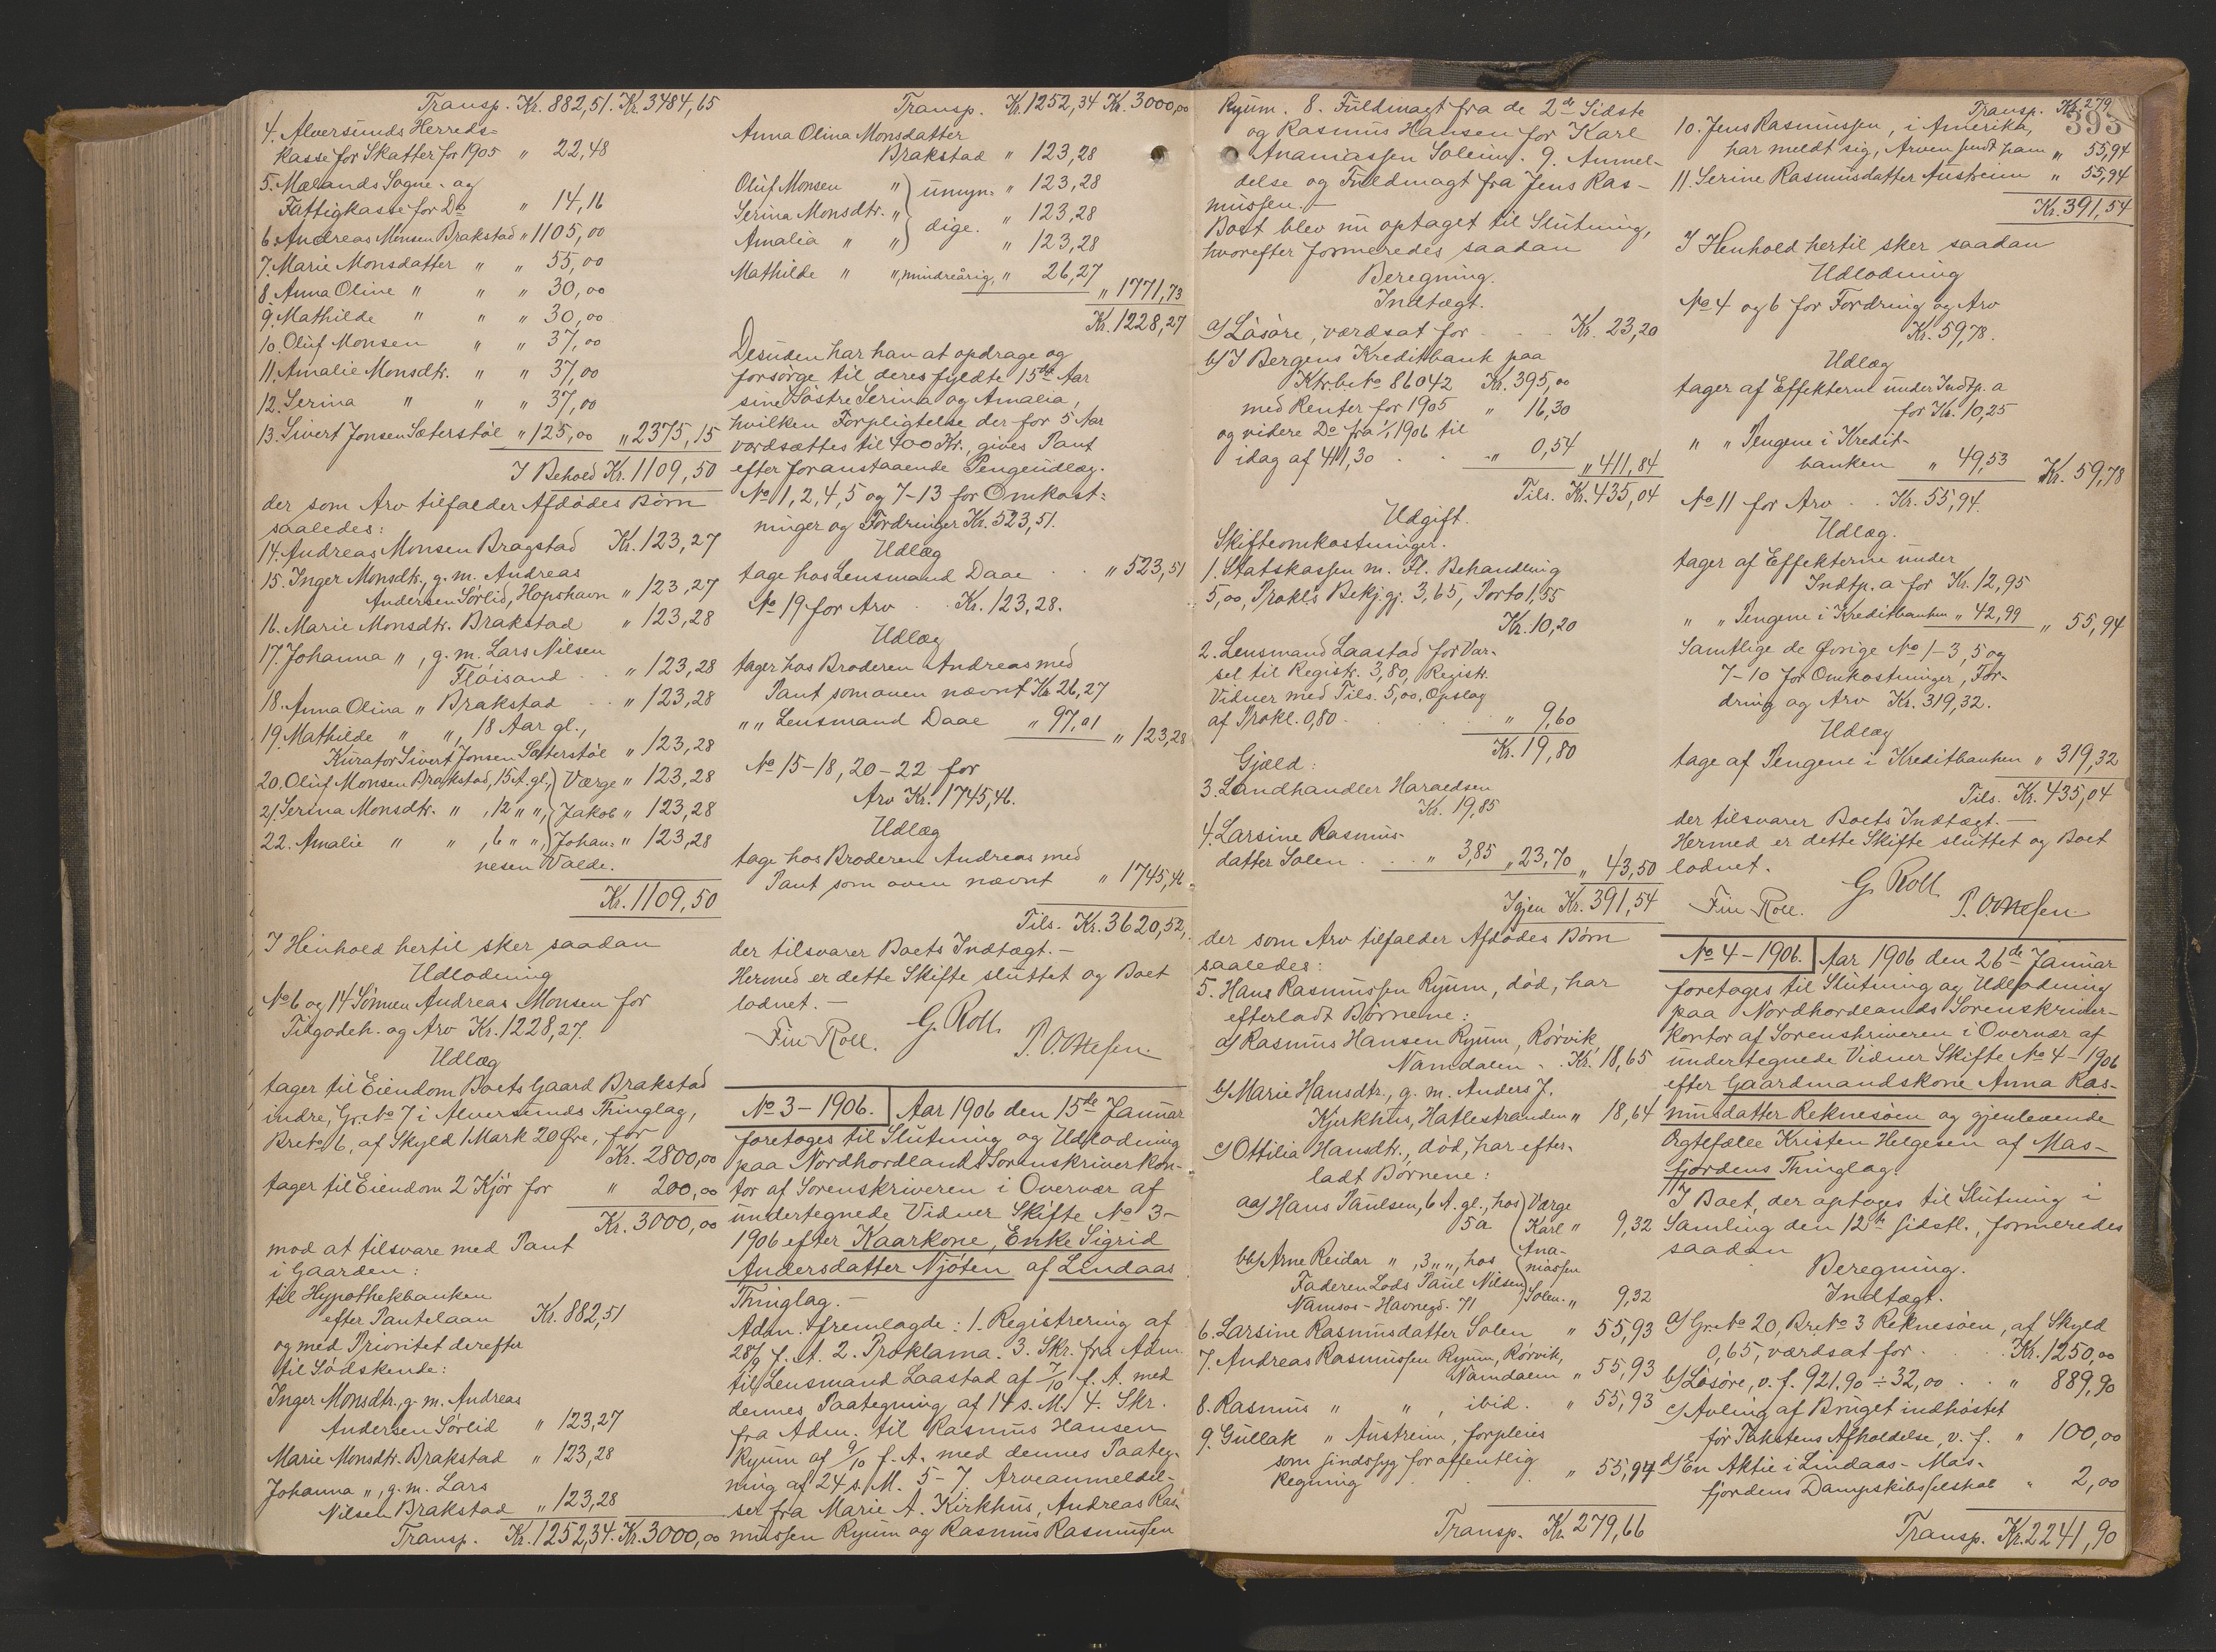 Transp. Kr. 882,51. Kr. 3484,65
4. Alversunds Herreds-
kasse for Skatter for 1905 " 22,48
5. Mælands Sogne- og
Fattigkasse for Do " 14,16
6. Andreas Monsen Brakstad " 1105,00
7. Marie Monsdatter " " 55,00
8. Anna Oline " " " 30,00
9. Mathilde " " " 30,00
10. Oluf Monsen " " 37,00
11. Amalie Monsdtr. " " 37,00
12. Serina " " " 37,00
13. Sivert Jonsen Sæterstøl " 125,00 " 2375,15
I Behold Kr. 1109,50
der som Arv tilfalder Afdødes Børn
saaledes:
14. Andreas Monsen Bragstad Kr. 123,27
15. Inger Monsdtr., g. m. Andreas
Andersen Sørlid, Hopshavn " 123,27
16. Marie Monsdtr. Brakstad " 123,28
17. Johanna ", g. m. Lars Nilsen
Fløisand . . " 123,28
18. Anna Olina " Brakstad . . " 123,28
19. Mathilde " ", 18 Aar gl.,
Kurator Sivert Jonsen Sæterstøl " 123,28
20. Oluf Monsen Brakstad, 15 A. gl., Værge " 123,28
21. Serina Monsdtr. " , 12 " ", Jakob " 123,28
22. Amalie " " , 6 " ", Johan- " 123,28
nesen Valde.
Kr. 1109,50
I Henhold hertil sker saadan
Udlodning
No 6 og 14 Sønnen Andreas Monsen for
Tilgodeh. og Arv Kr. 1228,27.
Udlæg
tager til Eiendom Boets Gaard Brakstad
indre, Gr. No 7 i Alversunds Thinglag,
Br. No 6, af Skyld 1 Mark 20 Øre, for
Kr. 2800,00
tager til Eiendom 2 Kjør for " 200,00
Kr. 3000,00
mod at tilsvare med Pant
i Gaarden:
til Hypothekbanken
efter Pantelaan Kr. 882,51
og med Prioritet derefter
til Sødskende:
Inger Monsdtr., g. m. Andreas
Andersen Sørlid " 123,27
Marie Monsdtr. Brakstad " 123,28
Johanna ", g. m. Lars
Nilsen Brakstad " 123,28
Transp. Kr. 1252,34. Kr. 3000,00
Transp. Kr. 1252,34 Kr. 3000,00
Anna Olina Monsdatter
Brakstad " 123,28
Oluf Monsen " umyn- " 123,28
Serina Monsdtr. " dige. " 123,28
Amalia " " " 123,28
Mathilde " ", mindreårig, " 26,27
" 1771,73
Kr. 1228,27
Desuden har han at opdrage og
forsørge til deres fyldte 15de Aar
sine Søstre Serina og Amalia,
hvilken Forpligtelse der for 5 Aar
værdsættes til 400 Kr., gives Pant
efter foranstaaende Pengeudlæg.
No 1, 2, 4, 5 og 7-13 for Omkost-
ninger og Fordringer Kr. 523,51.
Udlæg
tage hos Lensmand Daae . . " 523,51
No 19 for Arv . . Kr. 123,28.
Udlæg
tager hos Broderen Andreas med
Pant som oven nævnt Kr. 26,27
" " Lensmand Daae " 97,01 " 123,28
No 15-18, 20-22 for
Arv Kr. 1745,46.
Udlæg
tage hos Broderen Andreas med
Pant som oven nævnt " 1745,46
Tils. Kr. 3620,52,
der tilsvarer Boets Indtægt. -
Hermed er dette Skifte sluttet og Boet
lodnet. -
G. Roll.
Finn Roll.
No 3 - 1906. Aar 1906 den 15de Januar
foretoges til Slutning og Udlodning
paa Nordhordlands Sorenskriverkon-
tor af Sorenskriveren i Overvær af
undertegnede Vidner Skifte No 3-
1906 efter Kaarkone, Enke Sigrid
Andersdatter Njøten af Lindaas
Thinglag. -
Adm. fremlagde: 1. Registrering af
28/9 f. A. 2. Proklama. 3. Skr. fra Adm.
til Lensmand Laastad af 7/10 f. A. med
dennes Paategning af 14 s. M. 4. Skr.
fra Adm. til Rasmus Hansen
Ryum af 9/10 f. A. med dennes Paateg-
ning af 24 s. M. 5-7. Arveanmeldel-
ser fra Marie A. Kirkhus, Andreas Ras-
mussen Ryum og Rasmus Rasmussen
Ryum. 8. Fuldmagt fra de 2de Sidste
og Rasmus Hansen for Karl
Ananiassen Solein. 9. Anmel-
delse og Fuldmagt fra Jens Ras-
mussen. -
Boet blev nu optaget til Slutning,
hvorefter formeredes saadan
Beregning.
Indtægt.
a/ Løsøre, værdsat for . . . Kr. 23,20
b/ I Bergens Kreditbank paa
Ktrb. No 86042 Kr. 395,00
med Renter for 1905 " 16,30
og videre Do fra 1/1 1906 til
idag af 411,30 . . . " 0,54 " 411,84
Tils. Kr. 435,04
Udgift.
Skifteomkostninger.
1. Statskassen m. Fl. Behandling
5,00, Prokl.s Bekjgj. 3,65, Porto 1,55
Kr. 10,20
2. Lensmand Laastad for Var-
sel til Registr. 3,80, Registr.
Vidner med Tils. 5,00, Opslag
af Prokl. 0,80 . . . " 9,60
Kr. 19,80
Gjæld:
3. Landhandler Haraldsen
Kr. 19,85
4. Larsine Rasmus-
datter Solen . . . " 3,85 " 23,70 " 43,50
Igjen Kr. 391,54
der som Arv tilfalder Afdødes Børn
saaledes:
5. Hans Rasmussen Ryum, død, har
efterladt Børnene:
a/ Rasmus Hansen Ryum, Rørvik,
Namdalen . . Kr. 18,65
b/ Marie Hansdtr., g. m. Anders J.
Kjirkhus, Hatlestranden " 18,64
c/ Ottilia Hansdtr., død, har efter-
ladt Børnene:
aa/ Hans Paulsen, 6 A. gl., hos Værge
5a Karl " 9,32
Ana-
bb/ Arne Reidar " , 3 " ", hos niassen
Faderen Lods Paul Nilsen, Solen. "
Namsos - Havnegd. 71 9,32
6. Larsine Rasmusdatter Solen " 55,93
7. Andreas Rasmussen Ryum, Rørvik,
Namdalen " 55,93
8. Rasmus " " , ibid. " 55,93
9. Gullak " Austreim, forpleies
som sindssyg for offentlig
Regning . . . " 55,94
Transp. Kr. 279,66
395
Transp. Kr. 279
10. Jens Rasmussen, i Amerika,
har meldt sig, Arven sendt ham " 55,94
11. Serine Rasmusdatter Austreim " 55,94
Kr. 391,54
I Henhold hertil sker saadan
Udlodning
No 4 og 6 for Fordring og Arv
Kr. 59,78.
Udlæg
tager af Effekterne under Indtp. a
for Kr. 10,25
" " Pengene i Kredit-
banken " 49,53 Kr. 59,78
No 11 for Arv . . Kr. 55,94.
Udlæg.
tager af Effekterne under
Indtp. a for Kr. 12,95
" " Pengene i Kreditbanken " 42,99 " 55,94
Samtlige de Øvrige No 1-3, 5 og
7-10 for Omkostninger, For-
dring og Arv Kr. 319,32.
Udlæg
tage af Pengene i Kreditbanken " 319,32
Tils. Kr. 435,04
der tilsvarer Boets Indtægt. -
Hermed er dette Skifte sluttet og Boet
lodnet.
G. Roll.
Finn Roll.
No 4 - 1906. Aar 1906 den 26de Januar
foretoges til Slutning og Udlodning
paa Nordhordlands Sorenskriver-
kontor af Sorenskriveren i Overvær af
undertegnede Vidner Skifte No 4 - 1906
efter Gaardmandskone Anna Ras-
musdatter Reknesøen og gjenlevende
Ægtefælle Kristen Helgesen af Mas-
fjordens Thinglag.
I Boet, der optoges til Slutning i
Samling den 12te sidstl., formeredes
saadan
Beregning.
Indtægt.
a/ Gr. No 20, Br. No 3 Reknesøen, af Skyld
0,65, værdsat for . . . Kr. 1250,00
b/ Løsøre, v. f. 921,90 ÷ 32,00 . . " 889,90
c/ Avling af Bruget indhøstet
før Takstens Afholdelse, v. f. " 100,00
d/ En Aktie i Lindaas - Mas-
fjordens Dampskibsselskab " 2,00
Transp. Kr. 2241,90